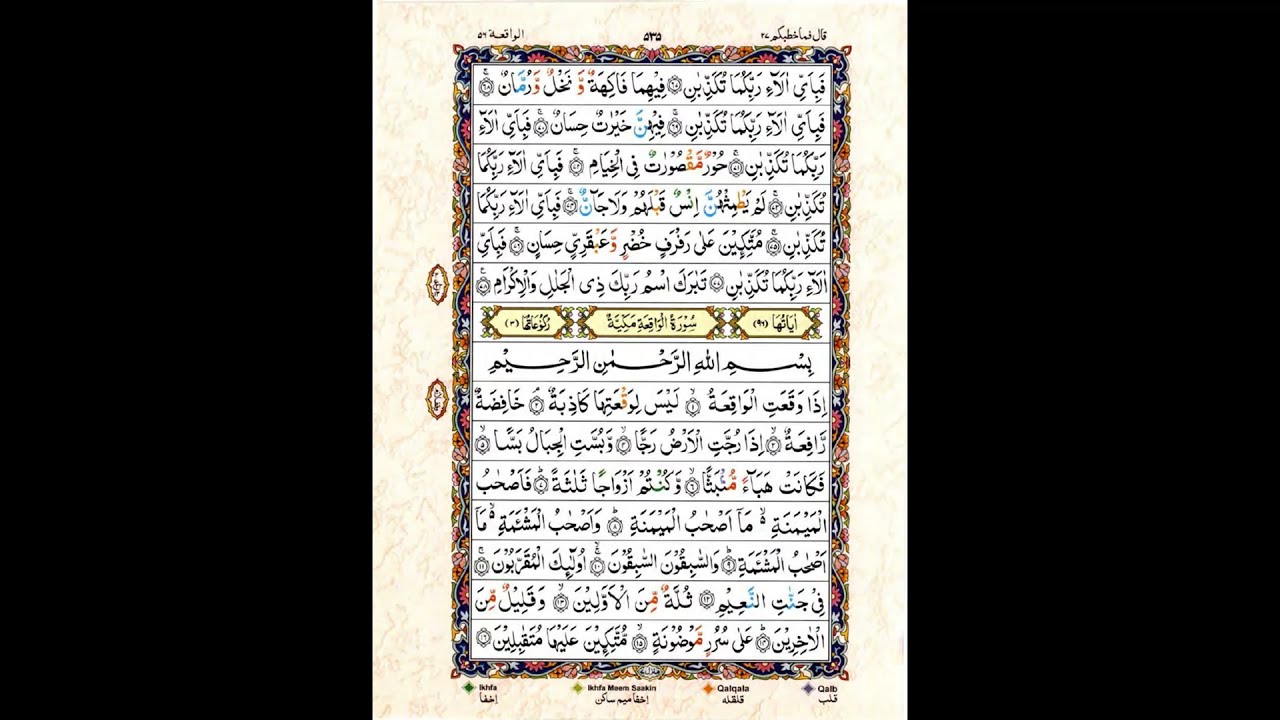 قال فما خطبكم ٢٧
٥٣٥
الواقعة ٥٦
فَبِاَيِّ اٰلَآءِ رَبِّكُمَا تُكَذِّبٰنِ ۟ۙ۶۷ فِيْهِمَا فَاكِهَةٌ وَّ نَخْلٌ وَّرُمَّانٌ ۟ۚ۶۸
فَبِاَيِّ اٰلَآءِ رَبِّكُمَا تُكَذِّبٰنِ ۟ۚ۶۹ فِيْهِنَّ خَيْرٰتٌ حِسَانٌ ۟ۚ۷۰ فَبِاَيِّ اٰلَآءِ
رَبِّكُمَا تُكَذِّبٰنِ ۟ۚ۷۱ حُوْرٌ مَّقْصُوْرٰتٌ فِي الْخِيَامِ ۟ۚ۷۲ فَبِاَيِّ اٰلَآءِ رَبِّكُمَا
تُكَذِّبٰنِ ۟ۚ۷۳ لَمْ يَطْمِثْهُنَّ اِنْسٌ قَبْلَهُمْ وَلَا جَآنٌّ ۟ۚ۷۴ فَبِاَيِّ اٰلَآءِ رَبِّكُمَا
تُكَذِّبٰنِ ۟ۚ۷۵ مُتَّكِـِٕيْنَ عَلٰى رَفْرَفٍ خُضْرٍ وَّعَبْقَرِيٍّ حِسَانٍ ۟ۚ۷۶ فَبِاَيِّ
اٰلَآءِ رَبِّكُمَا تُكَذِّبٰنِ ۷۷ تَبٰرَكَ اسْمُ رَبِّكَ ذِي الْجَلٰلِ وَالْاِكْرَامِ ۟۠۷۸
اٰيَاتُهَا (٩٦) سُوْرَةُ الْوَاقِعَةِ مَكِّيَّةٌ رُكُوْعَاتُهَا (٣)
بِسْمِ اللّٰهِ الرَّحْمٰنِ الرَّحِيْمِ
اِذَا وَقَعَتِ الْوَاقِعَةُ ۟ۙ۱ لَيْسَ لِوَقْعَتِهَا كَاذِبَةٌ ۟ۘ۲ خَافِضَةٌ
رَّافِعَةٌ ۟ۙ۳ اِذَا رُجَّتِ الْاَرْضُ رَجًّا ۟ۙ۴ وَّبُسَّتِ الْجِبَالُ بَسًّا ۟ۙ۵
فَكَانَتْ هَبَآءً مُّنْۢبَثًّا ۟ۙ۶ وَّكُنْتُمْ اَزْوَاجًا ثَلٰثَةً ۟ؕ۷ فَاَصْحٰبُ
الْمَيْمَنَةِ ۙ۬ مَاۤ اَصْحٰبُ الْمَيْمَنَةِ ۟ؕ۸ وَاَصْحٰبُ الْمَشْـَٔمَةِ ۙ۬ مَاۤ
اَصْحٰبُ الْمَشْـَٔمَةِ ۟ؕ۹ وَالسّٰبِقُوْنَ السّٰبِقُوْنَ ۟ۚۙ۱۰ اُولٰٓئِكَ الْمُقَرَّبُوْنَ ۟ۚ۱۱
فِيْ جَنّٰتِ النَّعِيْمِ ۱۲ ثُلَّةٌ مِّنَ الْاَوَّلِيْنَ ۟ۙ۱۳ وَقَلِيْلٌ مِّنَ
الْاٰخِرِيْنَ ۟ؕ۱۴ عَلٰى سُرُرٍ مَّوْضُوْنَةٍ ۟ۙ۱۵ مُّتَّكِـِٕيْنَ عَلَيْهَا مُتَقٰبِلِيْنَ ۱۶
Ikhfa Ikhfa Meem Saakin Qalqala Qalb
اِخفا اِخفا میم ساکن قلقله قلب